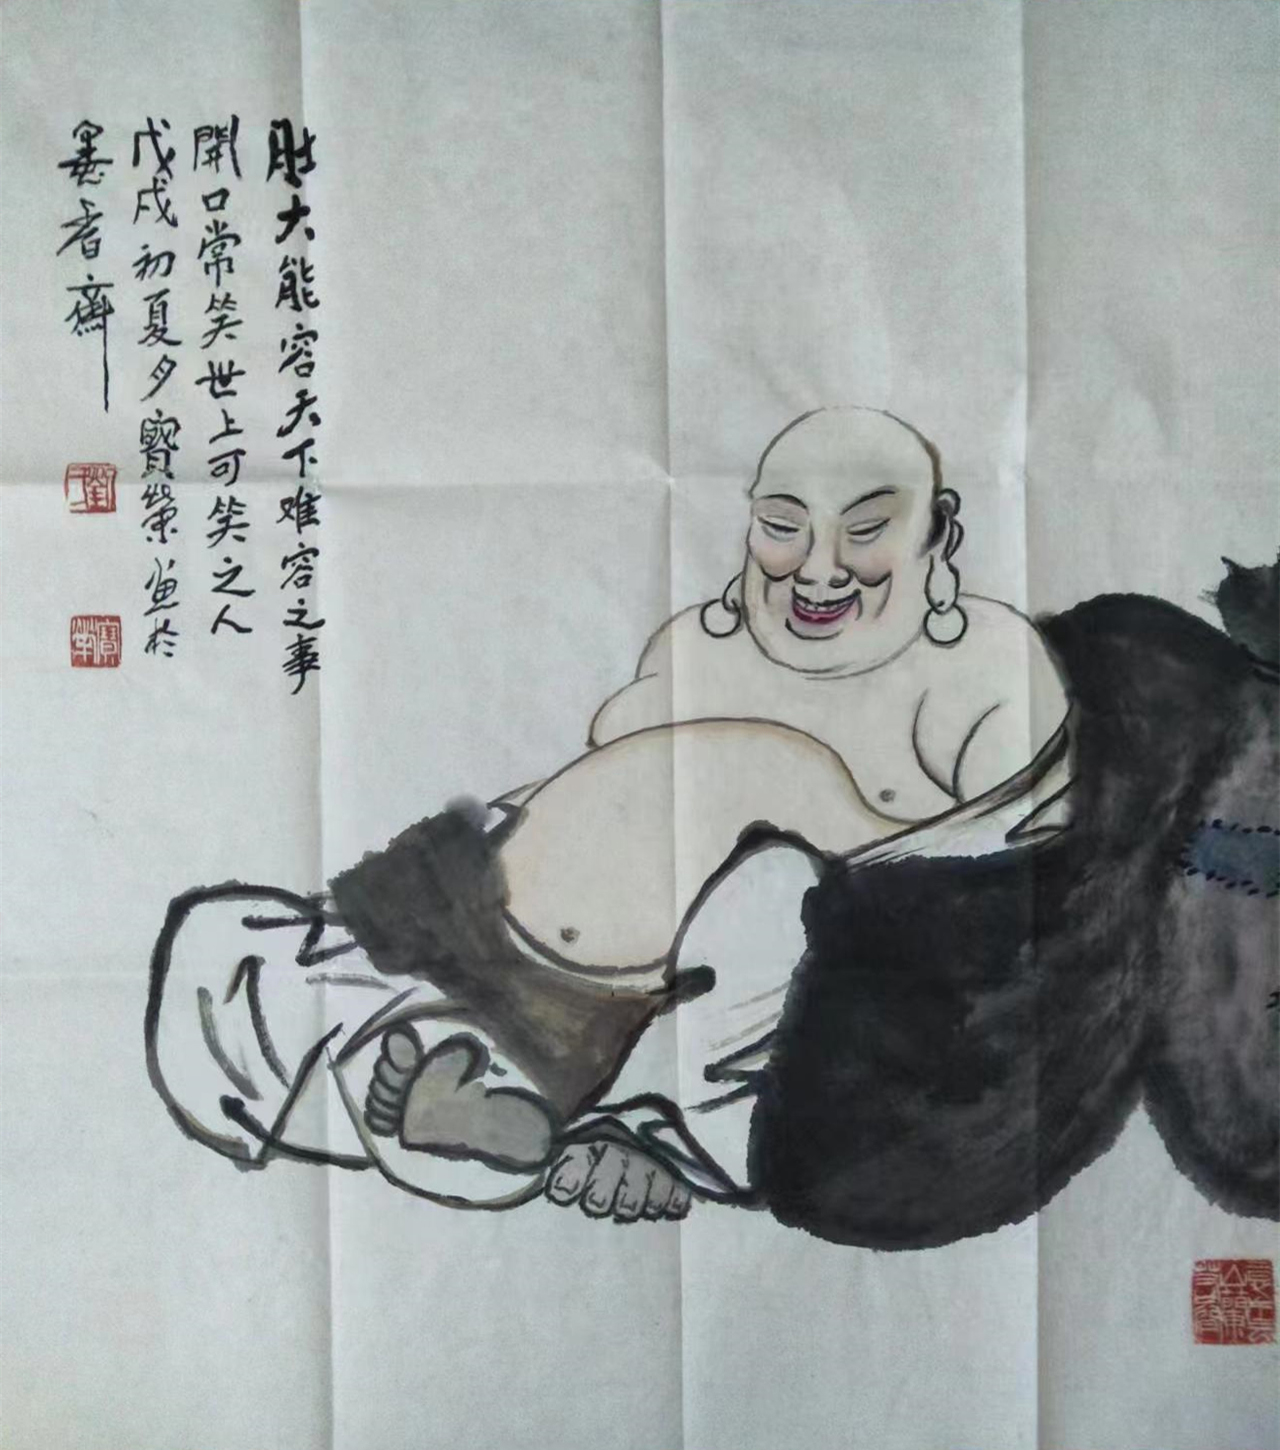 肚大能容天下难容之事
開口常笑世上可笑之人
戊戌初夏夕寶榮畫於
墨香齋
寶榮